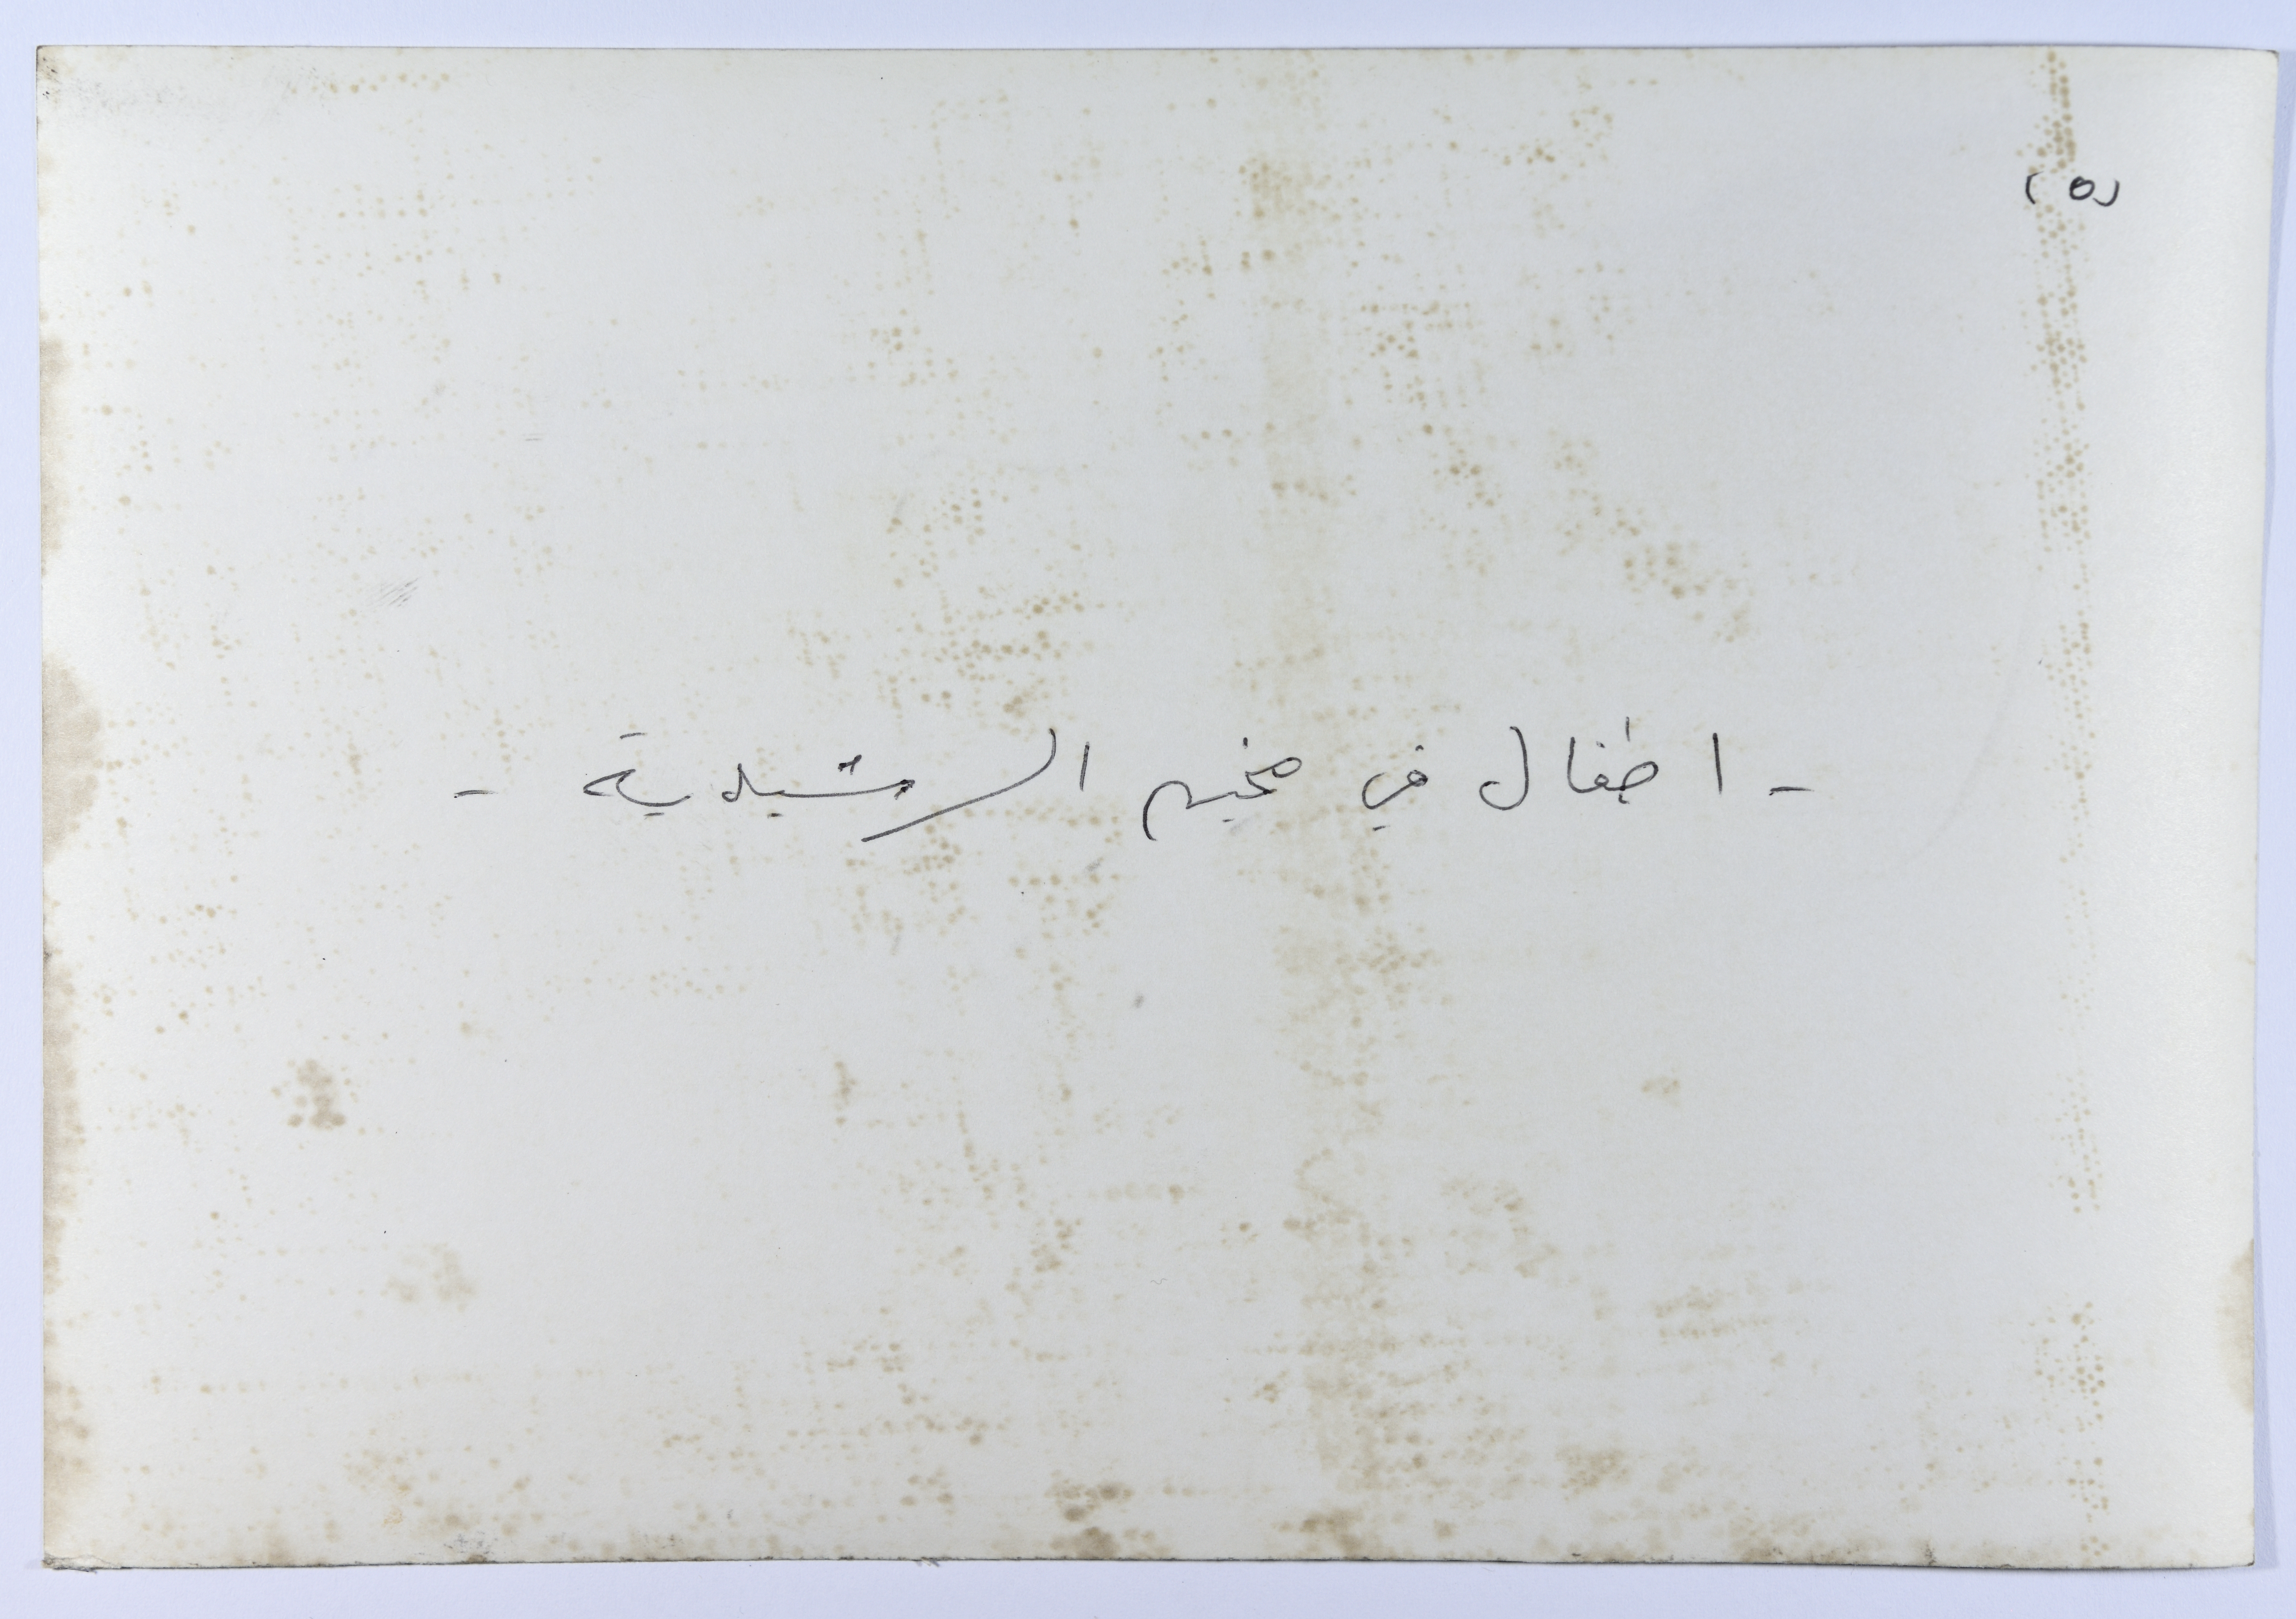 (٥)
- اطفال في مخيم الرشيدية -